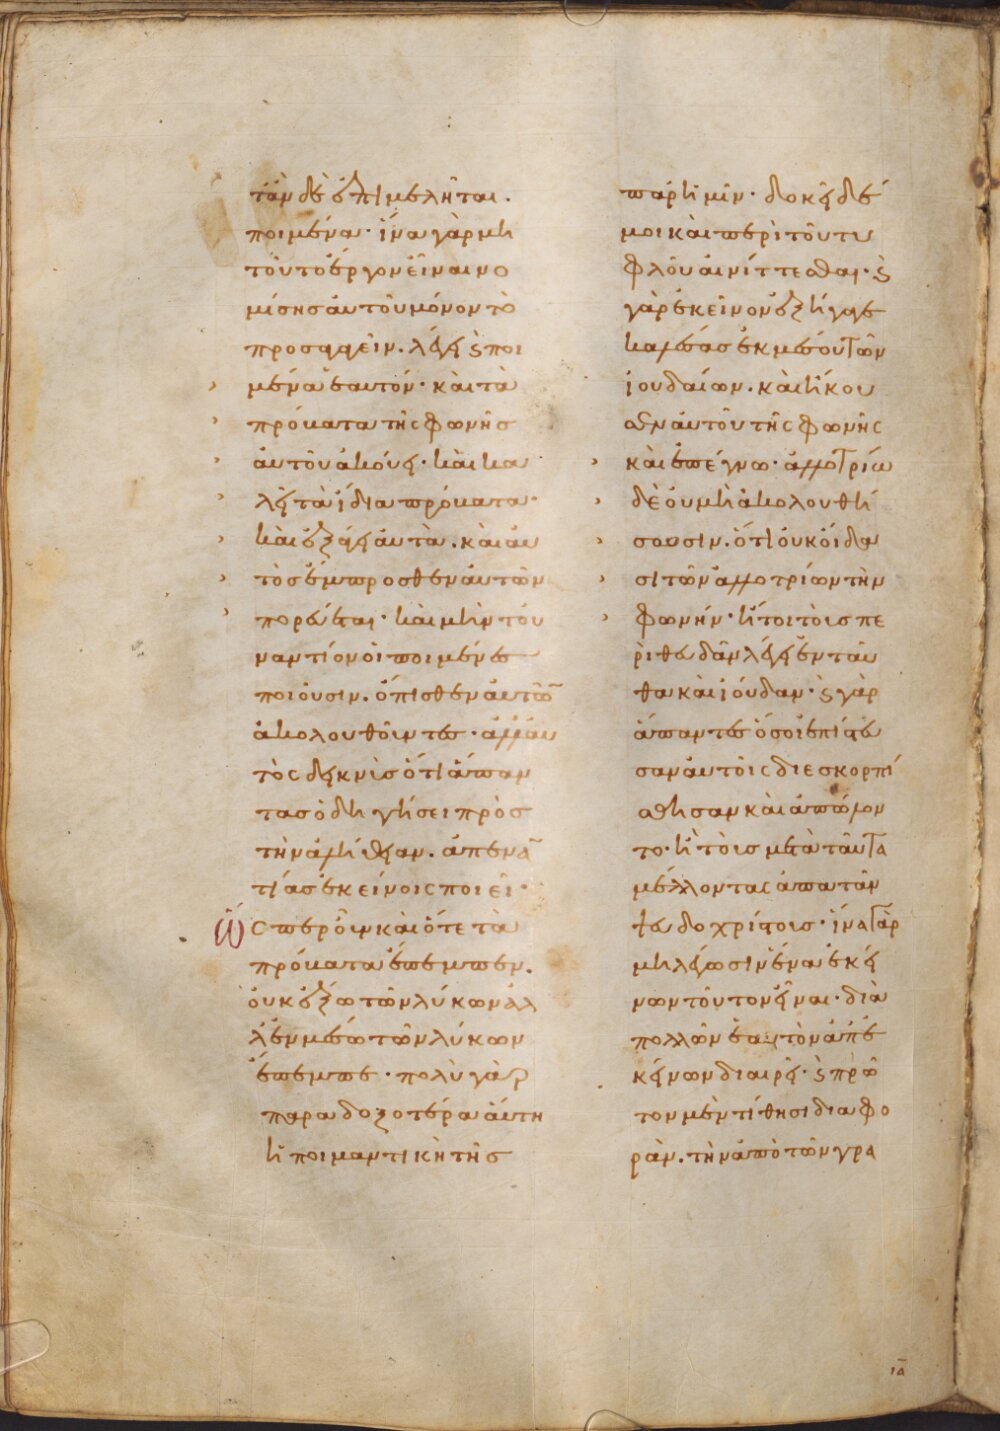 τἂν δὲ ἐπιμελῆται·
ποιμένα· ἵνα γὰρ μὴ
τοῦτο ἔργον εἶναι νο
μίσησ αὐτοῦ μόνον τὸ
προσαγαγεῖν. λέγει καὶ ποι
μένα ἑαυτόν· καὶ τὰ
πρόβατα τῆς φωνῆσ
αὐτοῦ ἀκούει· καὶ κα
λεῖ τὰ ἴδια πρόβατα·
καὶ ἐξάγει αὐτὰ. καὶ αὐ
τὸσ ἔμπροσθεν αὐτῶν
πορεύεται· καὶ μὴν τοὐ
ναντίον οἱ ποιμένεσ
ποιοῦσιν. ὄπισθεν αὐτῶ̅
ἀκολουθοῦντεσ· ἀλλ' αὐ
τὸς δεικνὺσ ὅτι ἅπαν
τασ ὁδηγήσει πρὸσ
τὴν ἀλήθειαν. ἀπενα̅
τίασ ἐκείνοις ποιεῖ·
Ὥς περ οὖν καὶ ὅτε τὰ
πρόβατα ἔπεμπεν.
οὐκ ἔξω τῶν λύκων ἀλ
λ' ἐν μέσω τῶν λύκων
ἔπεμπε· πολὺ γὰρ
παραδοξοτέρα αὕτη
ἡ ποιμαντικὴ τῆσ
παρ' ἡμῖν· δοκεῖ δέ
μοι καὶ περὶ τοῦ τυ
φλοῦ αἰνίττεσθαι· καὶ
γὰρ ἐκεῖνον ἐξήγαγε
καλέσασ ἐκ μέσου τῶν
ἰουδαίων. καὶ ἤκου
σεν αὐτοῦ τῆς φωνῆς
καὶ ἐπέγνω· ἀλλοτρίω
δὲ οὐ μὴ ἀκολουθή
σουσιν. ὅτι οὐκ οἴδα
σι τῶν ἀλλοτρίων τὴν
φωνήν· ἤτοι τοῖσ πε
ρὶ θευδᾶν λέγει ἐνταῦ
θα καὶ ἰούδαν· καὶ γὰρ
ἅπαντεσ ὅσοι ἐπίστευ
σαν αὐτοῖς διεσκορπί
σθησαν καὶ ἀπώλον
το· ἢ τοῖσ μετὰ ταῦτα
μέλλοντας ἀπατᾶν
ψευδοχρίστοισ· ἵνα γὰρ
μὴ λέγωσιν ἕνα ἐκεί
νων τοῦτον εἶναι· διὰ
πολλῶν ἑαυτὸν ἀπ' ἐ
κείνων διαιρεῖ· καὶ πρῶ
τον μὲν τίθησι διαφο
ράν. τὴν ἀπὸ τῶν γρα
ιδ̅